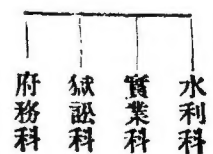 水利科
實業科
獄訟科
府務科